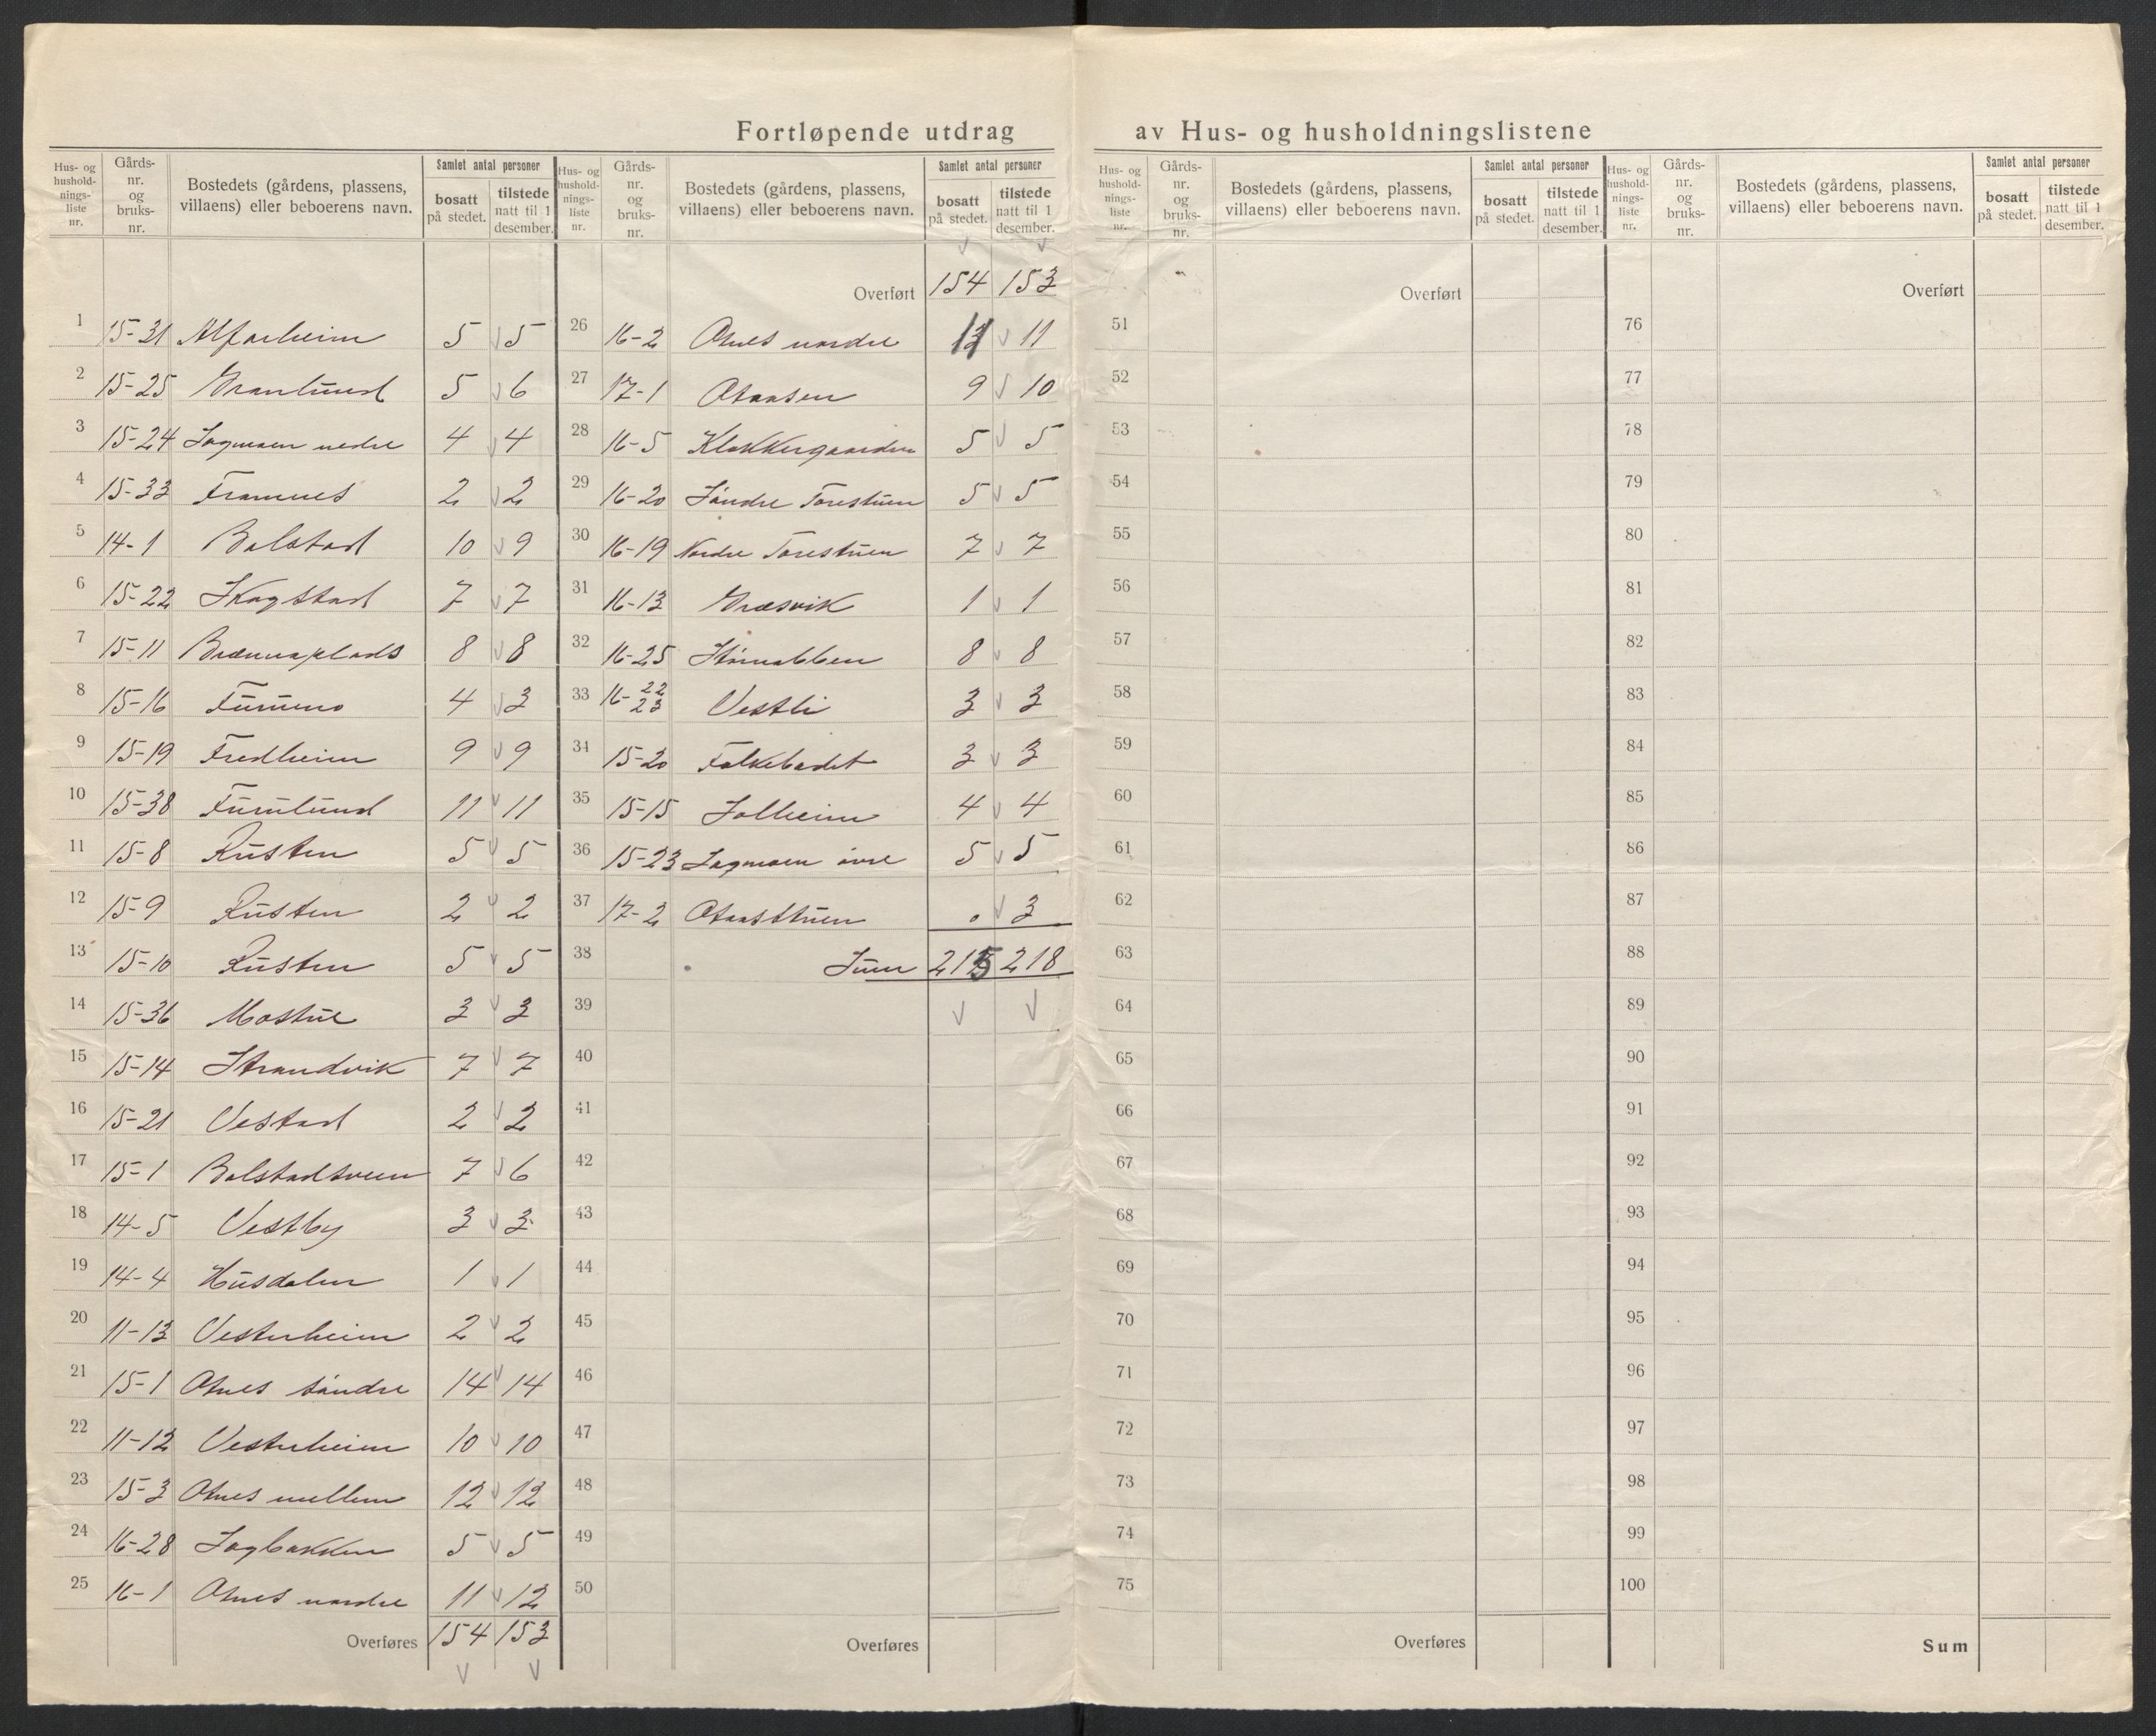 Fortløpende utdrag av Hus- og husholdningslistene
Hus- og hushold- nings- liste nr. Gårds- nr. og bruks- nr. Bostedets (gårdens, plassens, villaens) eller beboerens navn. Samlet antal personer bosatt på stedet. tilstede natt til 1 desember.
1 15-31 Alfarheim 5 5
2 15-25 Granlund 5 6
3 15-24 Sagmoen nedre 4 4
4 15-33 Framnes 2 2
5 14-1 Bolstad 10 9
6 15-22 Skogstad 7 7
7 15-11 Brænnaplads 8 8
8 15-16 Furumo 4 3
9 15-19 Fredheim 9 9
10 15-38 Furulund 11 11
11 15-8 Rusten 5 5
12 15-9 Rusten 2 2
13 15-10 Rusten 5 5
14 15-36 Mostue 3 3
15 15-14 Strandvik 7 7
16 15-21 Vestad 2 2
17 15-1 Bolstadsveen 7 6
18 14-5 Vestby 3 3
19 14-4 Husdalen 1 1
20 11-13 Vesterheim 2 2
21 15-1 Otnes søndre 14 14
22 11-12 Vesterheim 10 10
23 15-3 Otnes mellem 12 12
24 16-28 Sagbakken 5 5
25 16-1 Otnes nordre 11 12
Overføres 154 153
Hus- og hushold- nings- liste nr. Gårds- nr. og bruks- nr. Bostedets (gårdens, plassens, villaens) eller beboerens navn. Samlet antal personer bosatt på stedet. tilstede natt til 1 desember.
Overført 154 153
26 16-2 Otnes nordre 11 11
27 17-1 Otaasen 9 10
28 16-5 Klokkergaarden 5 5
29 16-20 Søndre Torestuen 5 5
30 16-19 Nordre Torestuen 7 7
31 16-13 Græsvik 1 1
32 16-25 Størnabben 8 8
33 16-22 23 Vestli 3 3
34 15-20 Folkebadet 3 3
35 15-15 Solheim 4 4
36 15-23 Sagmoen øvre 5 5
37 17-2 Otaasstuen . 3
38 Sum 215 218
39
40
41
42
43
44
45
46
47
48
49
50
Overføres
Hus- og hushold- nings- liste nr. Gårds- nr. og bruks- nr. Bostedets (gårdens, plassens, villaens) eller beboerens navn. Samlet antal personer bosatt på stedet. tilstede natt til 1 desember.
Overført
51
52
53
54
55
56
57
58
59
60
61
62
63
64
65
66
67
68
69
70
71
72
73
74
75
Overføres
Hus- og hushold- nings- liste nr. Gårds- nr. og bruks- nr. Bostedets (gårdens, plassens, villaens) eller beboerens navn. Samlet antal personer bosatt på stedet. tilstede natt til 1 desember.
Overført
76
77
78
79
80
81
82
83
84
85
86
87
88
89
90
91
92
93
94
95
96
97
98
99
100
Sum